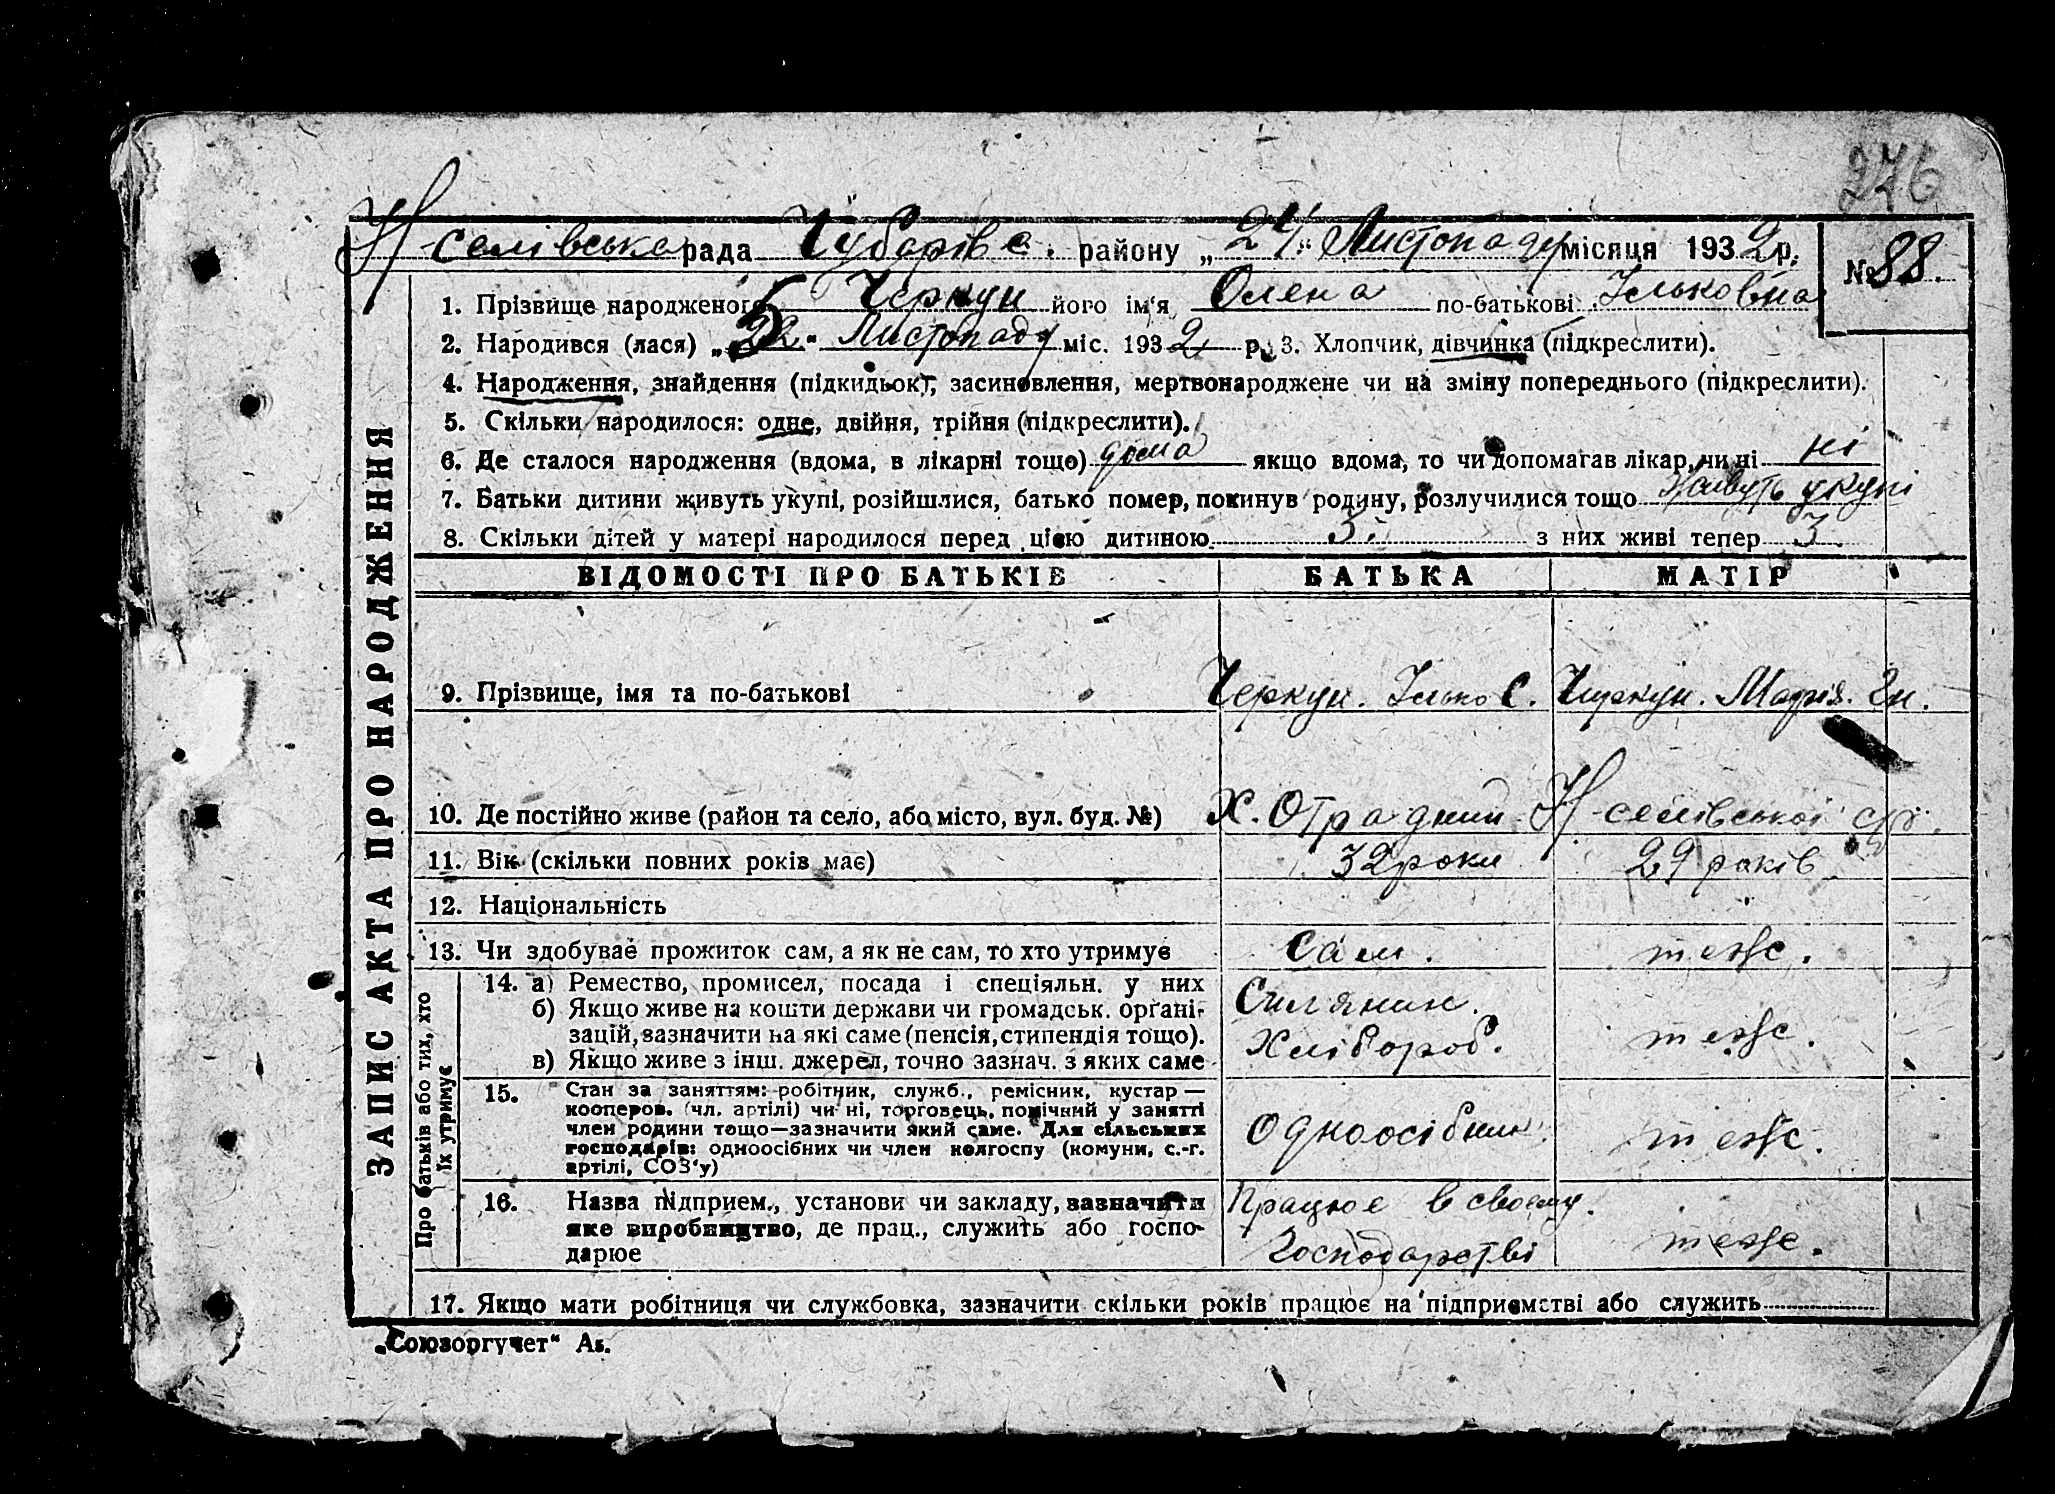 276
Н-селівська рада Чубарівс. району „24“ Листопаду місяця 1932 р.
№ 88.
1. Прізвище народженого Черкун його ім'я Олена по-батькові Ільковна
2. Народився (лася) „22“ Листопаду міс. 1932 р. 3. Хлопчик, дівчинка (підкреслити).
4. Народження, знайдення (підкидьок), засиновлення, мертвонароджене чи на зміну попереднього (підкреслити).
5. Скільки народилося: одне, двійня, трійня (підкреслити).
6. Де сталося народження (вдома, в лікарні тощо) дома якщо вдома, то чи допомагав лікар, чи ні ні
7. Батьки дитини живуть укупі, розійшлися, батько помер, покинув родину, розлучилися тощо Живуть укупі
8. Скільки дітей у матері народилося перед цією дитиною 3. з них живі тепер 3
ЗАПИС АКТА ПРО НАРОДЖЕННЯ
ВІДОМОСТІ ПРО БАТЬКІВ БАТЬКА МАТІР
9. Прізвище, імя та по-батькові Черкун. Ілько С. Чиркун. Марія. Гн.
10. Де постійно живе (район та село, або місто, вул. буд. №) Х. Отрадний Н-селівської с/р.
11. Вік (скільки повних років має) 32 роки 29 років
12. Національність
13. Чи здобуває прожиток сам, а як не сам, то хто утримує сам. теж.
Про батьків або тих, хто їх утримує
14. а) Ремество, промисел, посада і спеціяльн. у них Силянин.
б) Якщо живе на кошти держави чи громадськ. органі-
зацій, зазначити на які саме (пенсія, стипендія тощо). Хлібороб. теж.
в) Якщо живе з інш. джерел, точно зазнач. з яких саме
15. Стан за заняттям: робітник, служб., ремісник, кустар —
кооперов. (чл. артілі) чи ні, торговець, помічний у занятті
член родини тощо—зазначити який саме. Для сільських Одноосібник теж.
господарів: одноосібних чи член колгоспу (комуни, с.-г.
артілі, СОЗ'у)
16. Назва підприєм., установи чи закладу, зазначити Працює в своєму.
яке виробництво, де прац., служить або госпо-
дарює Господарстві теж.
17. Якщо мати робітниця чи службовка, зазначити скільки років працює на підприємстві або служить
„Союзоргучет“ Аг.